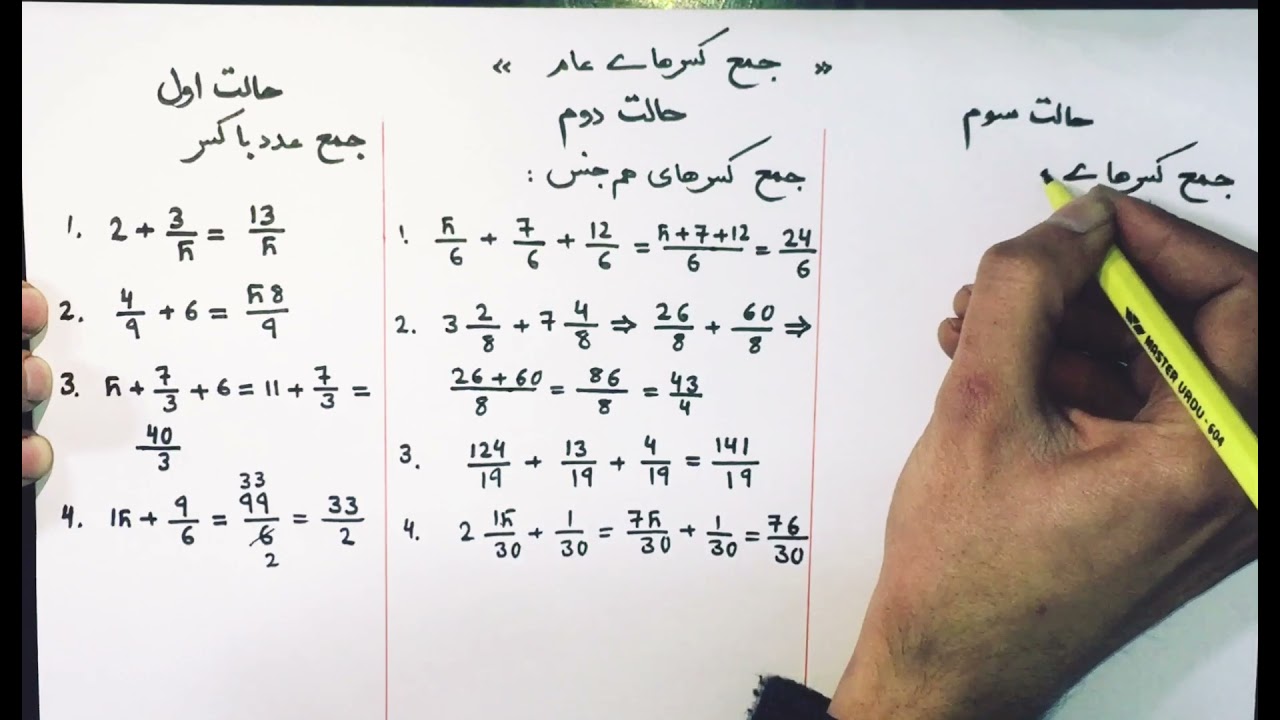 « جمع کسرهاے عام »
حالت اول
جمع عدد با کسر
1. 2 + 3/5 = 13/5
2. 4/9 + 6 = 58/9
3. 5 + 7/3 + 6 = 11 + 7/3 =
40/3
4. 15 + 9/6 = 99/6 = 33/2
33
2
حالت دوم
جمع کسرهای هم جنس :
1. 5/6 + 7/6 + 12/6 = 5+7+12/6 = 24/6
2. 3 2/8 + 7 4/8 ⇒ 26/8 + 60/8 ⇒
26+60/8 = 86/8 = 43/4
3. 124/19 + 13/19 + 4/19 = 141/19
4. 2 15/30 + 1/30 = 75/30 + 1/30 = 76/30
حالت سوم
جمع کسرهاے
MASTER URDU - 604